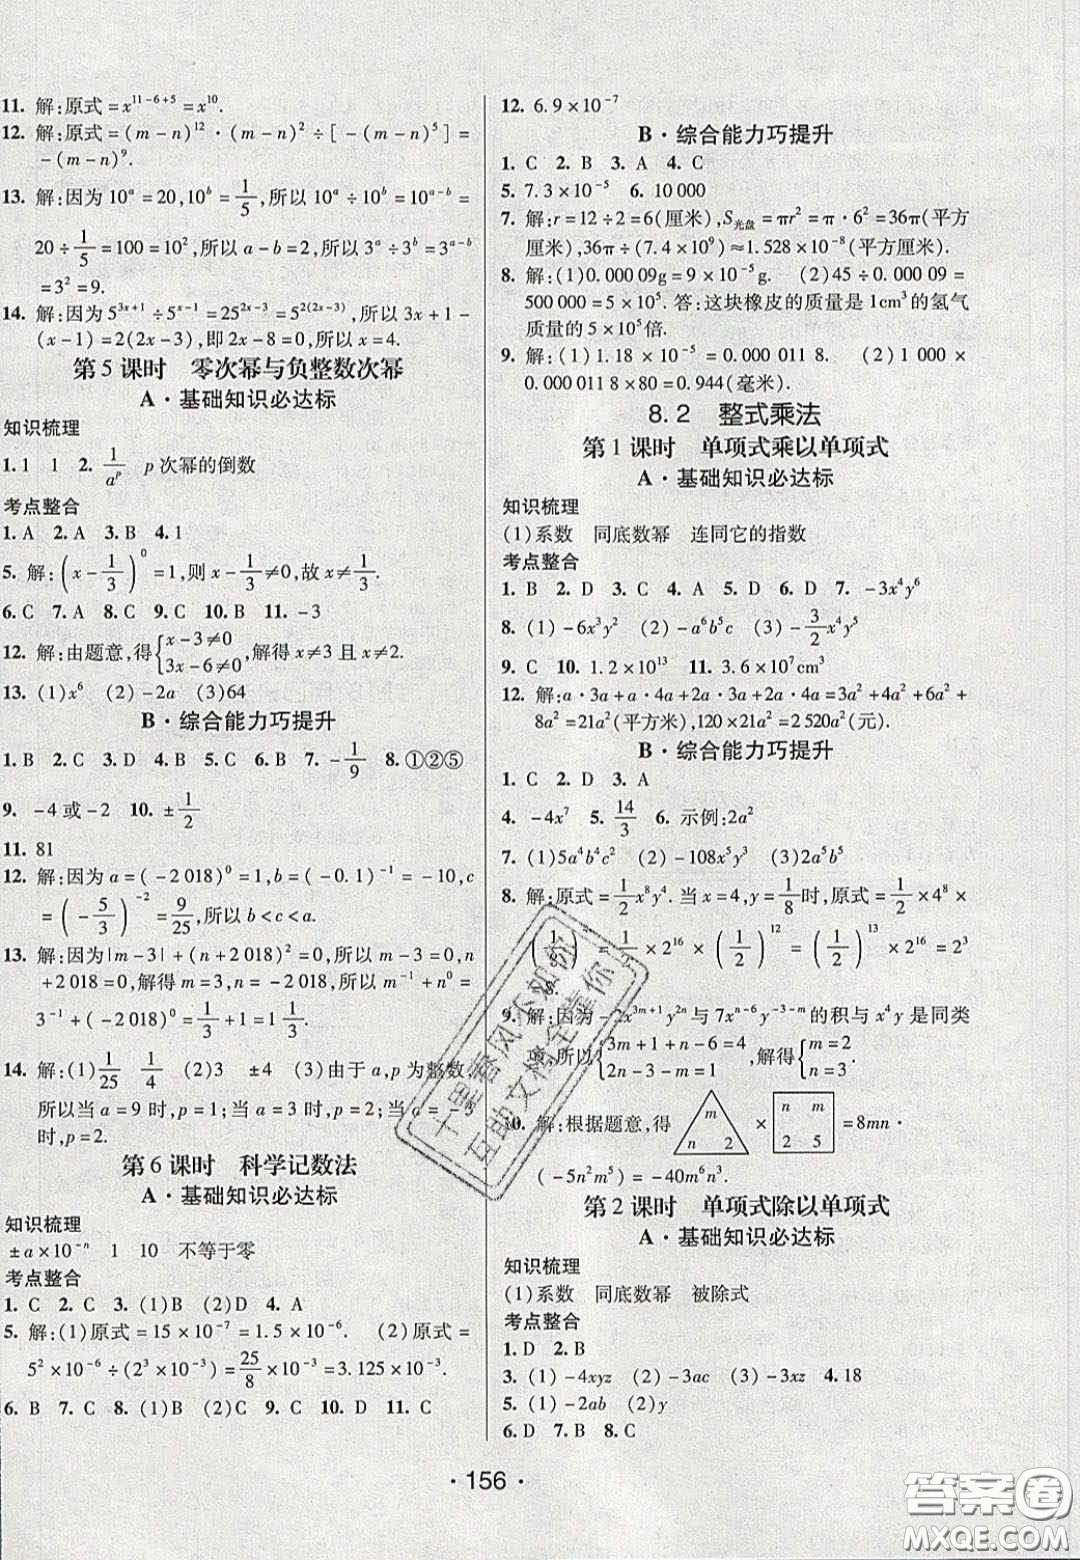 11. 解:原式=x^{11-6+5}=x^{10}.
12. 解:原式=(m-n)^{12}·(m-n)^2÷[-(m-n)^5]=
-(m-n)^9.
13. 解:因为10^a=20,10^b=1/5,所以10^a÷10^b=10^{a-b}=
20÷1/5=100=10^2,所以a-b=2,所以3^a÷3^b=3^{a-b}
=3^2=9.
14. 解:因为5^{3x+1}÷5^{x-1}=25^{2x-3}=5^{2(2x-3)},所以3x+1-
(x-1)=2(2x-3),即2x-8=0,所以x=4.
第5课时 零次幂与负整数次幂
A·基础知识必达标
知识梳理
1. 1 1 2. 1/a^p p次幂的倒数
考点整合
1. A 2. A 3. B 4. 1
5. 解:(x-1/3)^0=1,则x-1/3≠0,故x≠1/3.
6. C 7. A 8. C 9. C 10. B 11. -3
12. 解:由题意,得{x-3≠0 3x-6≠0,解得x≠3且x≠2.
13. (1)x^6 (2)-2a (3)64
B·综合能力巧提升
1. B 2. C 3. D 4. B 5. C 6. B 7. -1/9 8. ①②⑤
9. -4或-2 10. ±1/2
11. 81
12. 解:因为a=(-2 018)^0=1,b=(-0.1)^{-1}=-10,c
=(-5/3)^{-2}=9/25,所以b<c<a.
13. 解:因为|m-3|+(n+2 018)^2=0,所以m-3=0,n
+2 018=0,解得m=3,n=-2 018,所以m^{-1}+n^0=
3^{-1}+(-2 018)^0=1/3+1=1 1/3.
14. 解:(1)1/25 1/4 (2)3 ±4 (3)由于a,p为整数,
所以当a=9时,p=1;当a=3时,p=2;当a=-3
时,p=2.
第6课时 科学记数法
A·基础知识必达标
知识梳理
±a×10^{-n} 1 10 不等于零
考点整合
1. C 2. C 3. (1)B (2)D 4. A
5. 解:(1)原式=15×10^{-7}=1.5×10^{-6}. (2)原式=
5^2×10^{-6}÷(2^3×10^{-3})=25/8×10^{-3}=3.125×10^{-3}.
6. B 7. C 8. (1)B (2)C 9. C 10. D 11. C
12. 6.9×10^{-7}
B·综合能力巧提升
1. C 2. B 3. A 4. C
5. 7.3×10^{-5} 6. 10 000
7. 解:r=12÷2=6(厘米),S_{光盘}=πr^2=π·6^2=36π(平方
厘米),36π÷(7.4×10^9)≈1.528×10^{-8}(平方厘米).
8. 解:(1)0.000 09g=9×10^{-5}g. (2)45÷0.000 09=
500 000=5×10^5.答:这块橡皮的质量是1cm^3的氢气
质量的5×10^5倍.
9. 解:(1)1.18×10^{-5}=0.000 011 8. (2)0.000 011 8÷
0.000 011 8×80 000=0.944(毫米).
8.2 整式乘法
第1课时 单项式乘以单项式
A·基础知识必达标
知识梳理
(1)系数 同底数幂 连同它的指数
考点整合
1. B 2. D 3. C 4. B 5. D 6. D 7. -3x^4y^6
8. (1)-6x^3y^2 (2)-a^6b^5c (3)-3/2x^4y^5
9. C 10. 1.2×10^{13} 11. 3.6×10^7cm^3
12. 解:a·3a+a·4a+2a·3a+2a·4a=3a^2+4a^2+6a^2+
8a^2=21a^2(平方米),120×21a^2=2 520a^2(元).
B·综合能力巧提升
1. C 2. D 3. A
4. -4x^7 5. 14/3 6. 示例:2a^2
7. (1)5a^4b^4c^2 (2)-108x^5y^3 (3)2a^5b^5
8. 解:原式=1/2x^8y^4.当x=4,y=1/8时,原式=1/2×4^8×
(1/8)^4=1/2×2^{16}×(1/2)^{12}=(1/2)^{13}×2^{16}=2^3
=8.
9. 解:因为-2x^{3m+1}y^{2n}与7x^{n-6}y^{-3-m}的积与x^4y是同类
项,所以{3m+1+n-6=4 2n-3-m=1,解得{m=2 n=3.
10. 解:根据题意,得 m n 2 × n m 2 5 =8mn·
(-5n^2m^5)=-40m^6n^3.
第2课时 单项式除以单项式
A·基础知识必达标
知识梳理
(1)系数 同底数幂 被除式
考点整合
1. D 2. B
3. (1)-4xyz (2)-3ac (3)-3xz 4. 18
5. (1)-2ab (2)y
6. D 7. B 8. C
·156·
十里春风不如你
互助文档全靠你
答案圈
MXQE.COM